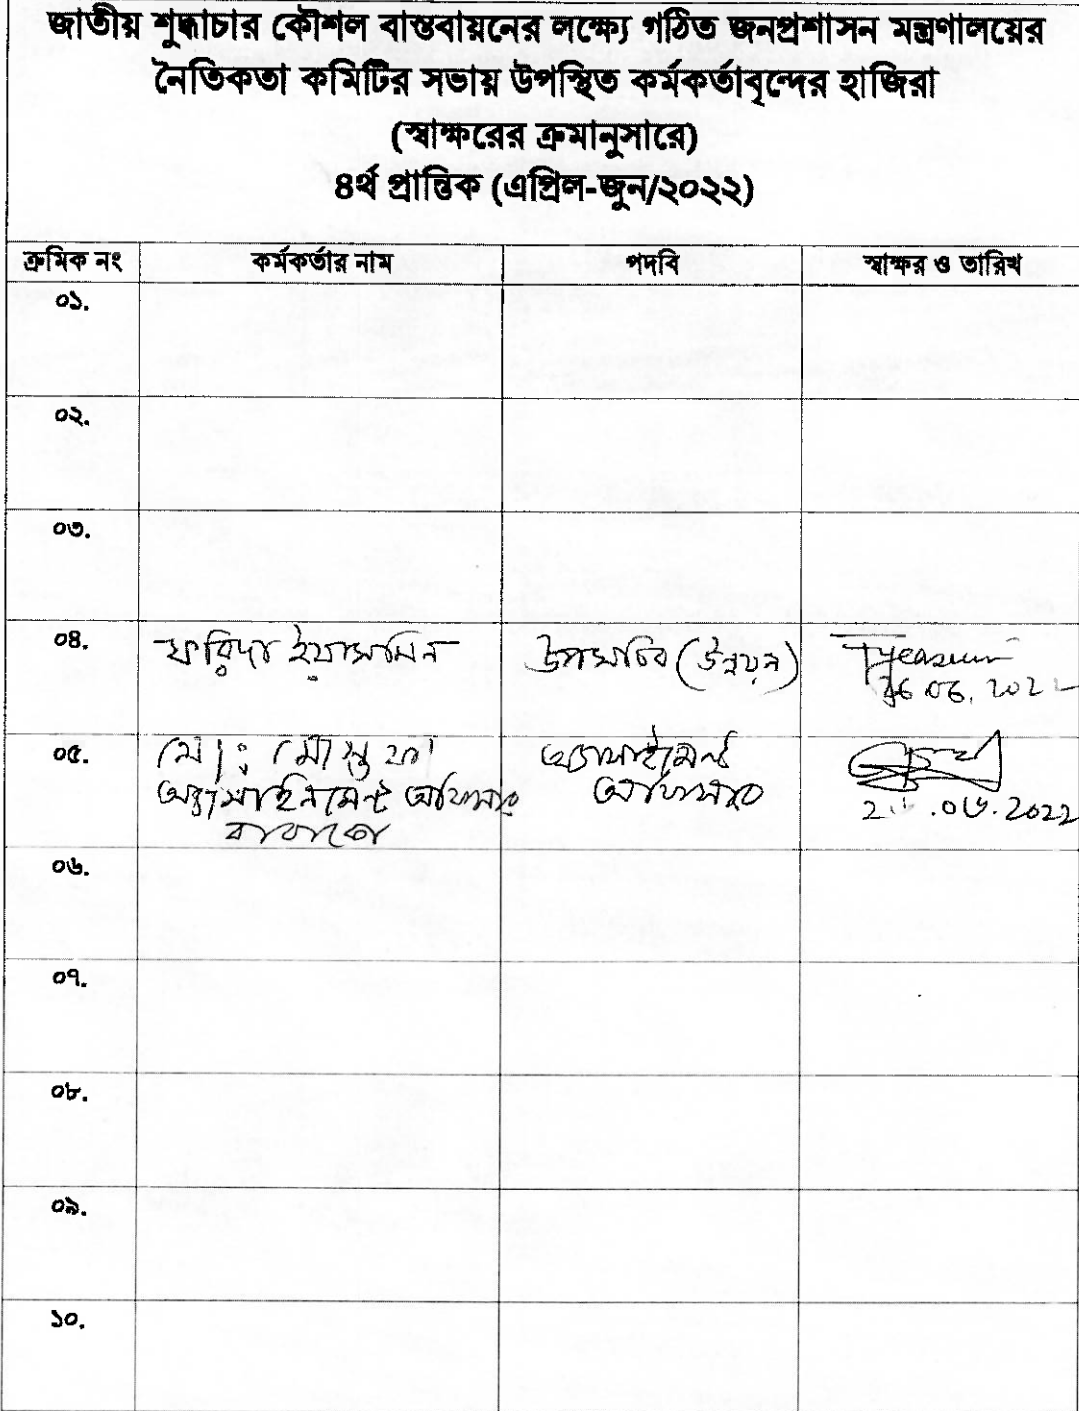 জাতীয় শুদ্ধাচার কৌশল বাস্তবায়নের লক্ষ্যে গঠিত জনপ্রশাসন মন্ত্রণালয়ের
নৈতিকতা কমিটির সভায় উপস্থিত কর্মকর্তাবৃন্দের হাজিরা
(স্বাক্ষরের ক্রমানুসারে)
৪র্থ প্রান্তিক (এপ্রিল-জুন/২০২২)
ক্রমিক নং কর্মকর্তার নাম পদবি স্বাক্ষর ও তারিখ
০১.
০২.
০৩.
০৪. ফরিদা ইয়াসমিন উপসচিব (উন্নয়ন)
26.06.2022
০৫. মো: মোস্তফা অ্যাসাইমেন্ট
অ্যাসাইনমেন্ট অফিসার অফিসার
.০৬.2022
০৬.
০৭.
০৮.
০৯.
১০.